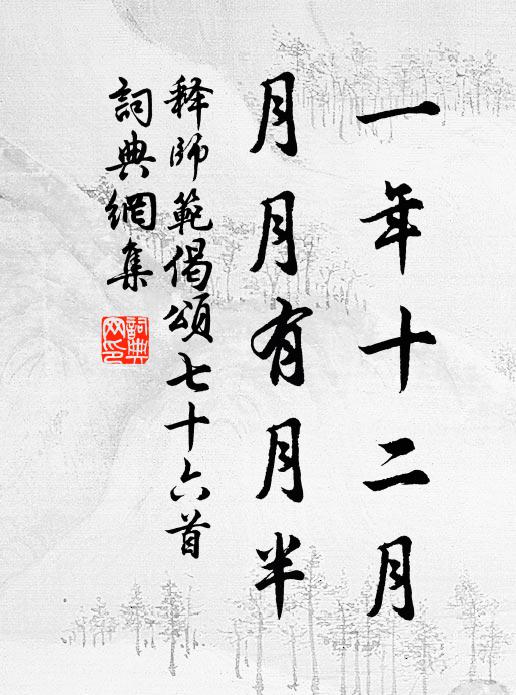 一年十二月
月月有月半
释師範偈頌七十六首
詞典網集
詞典网印